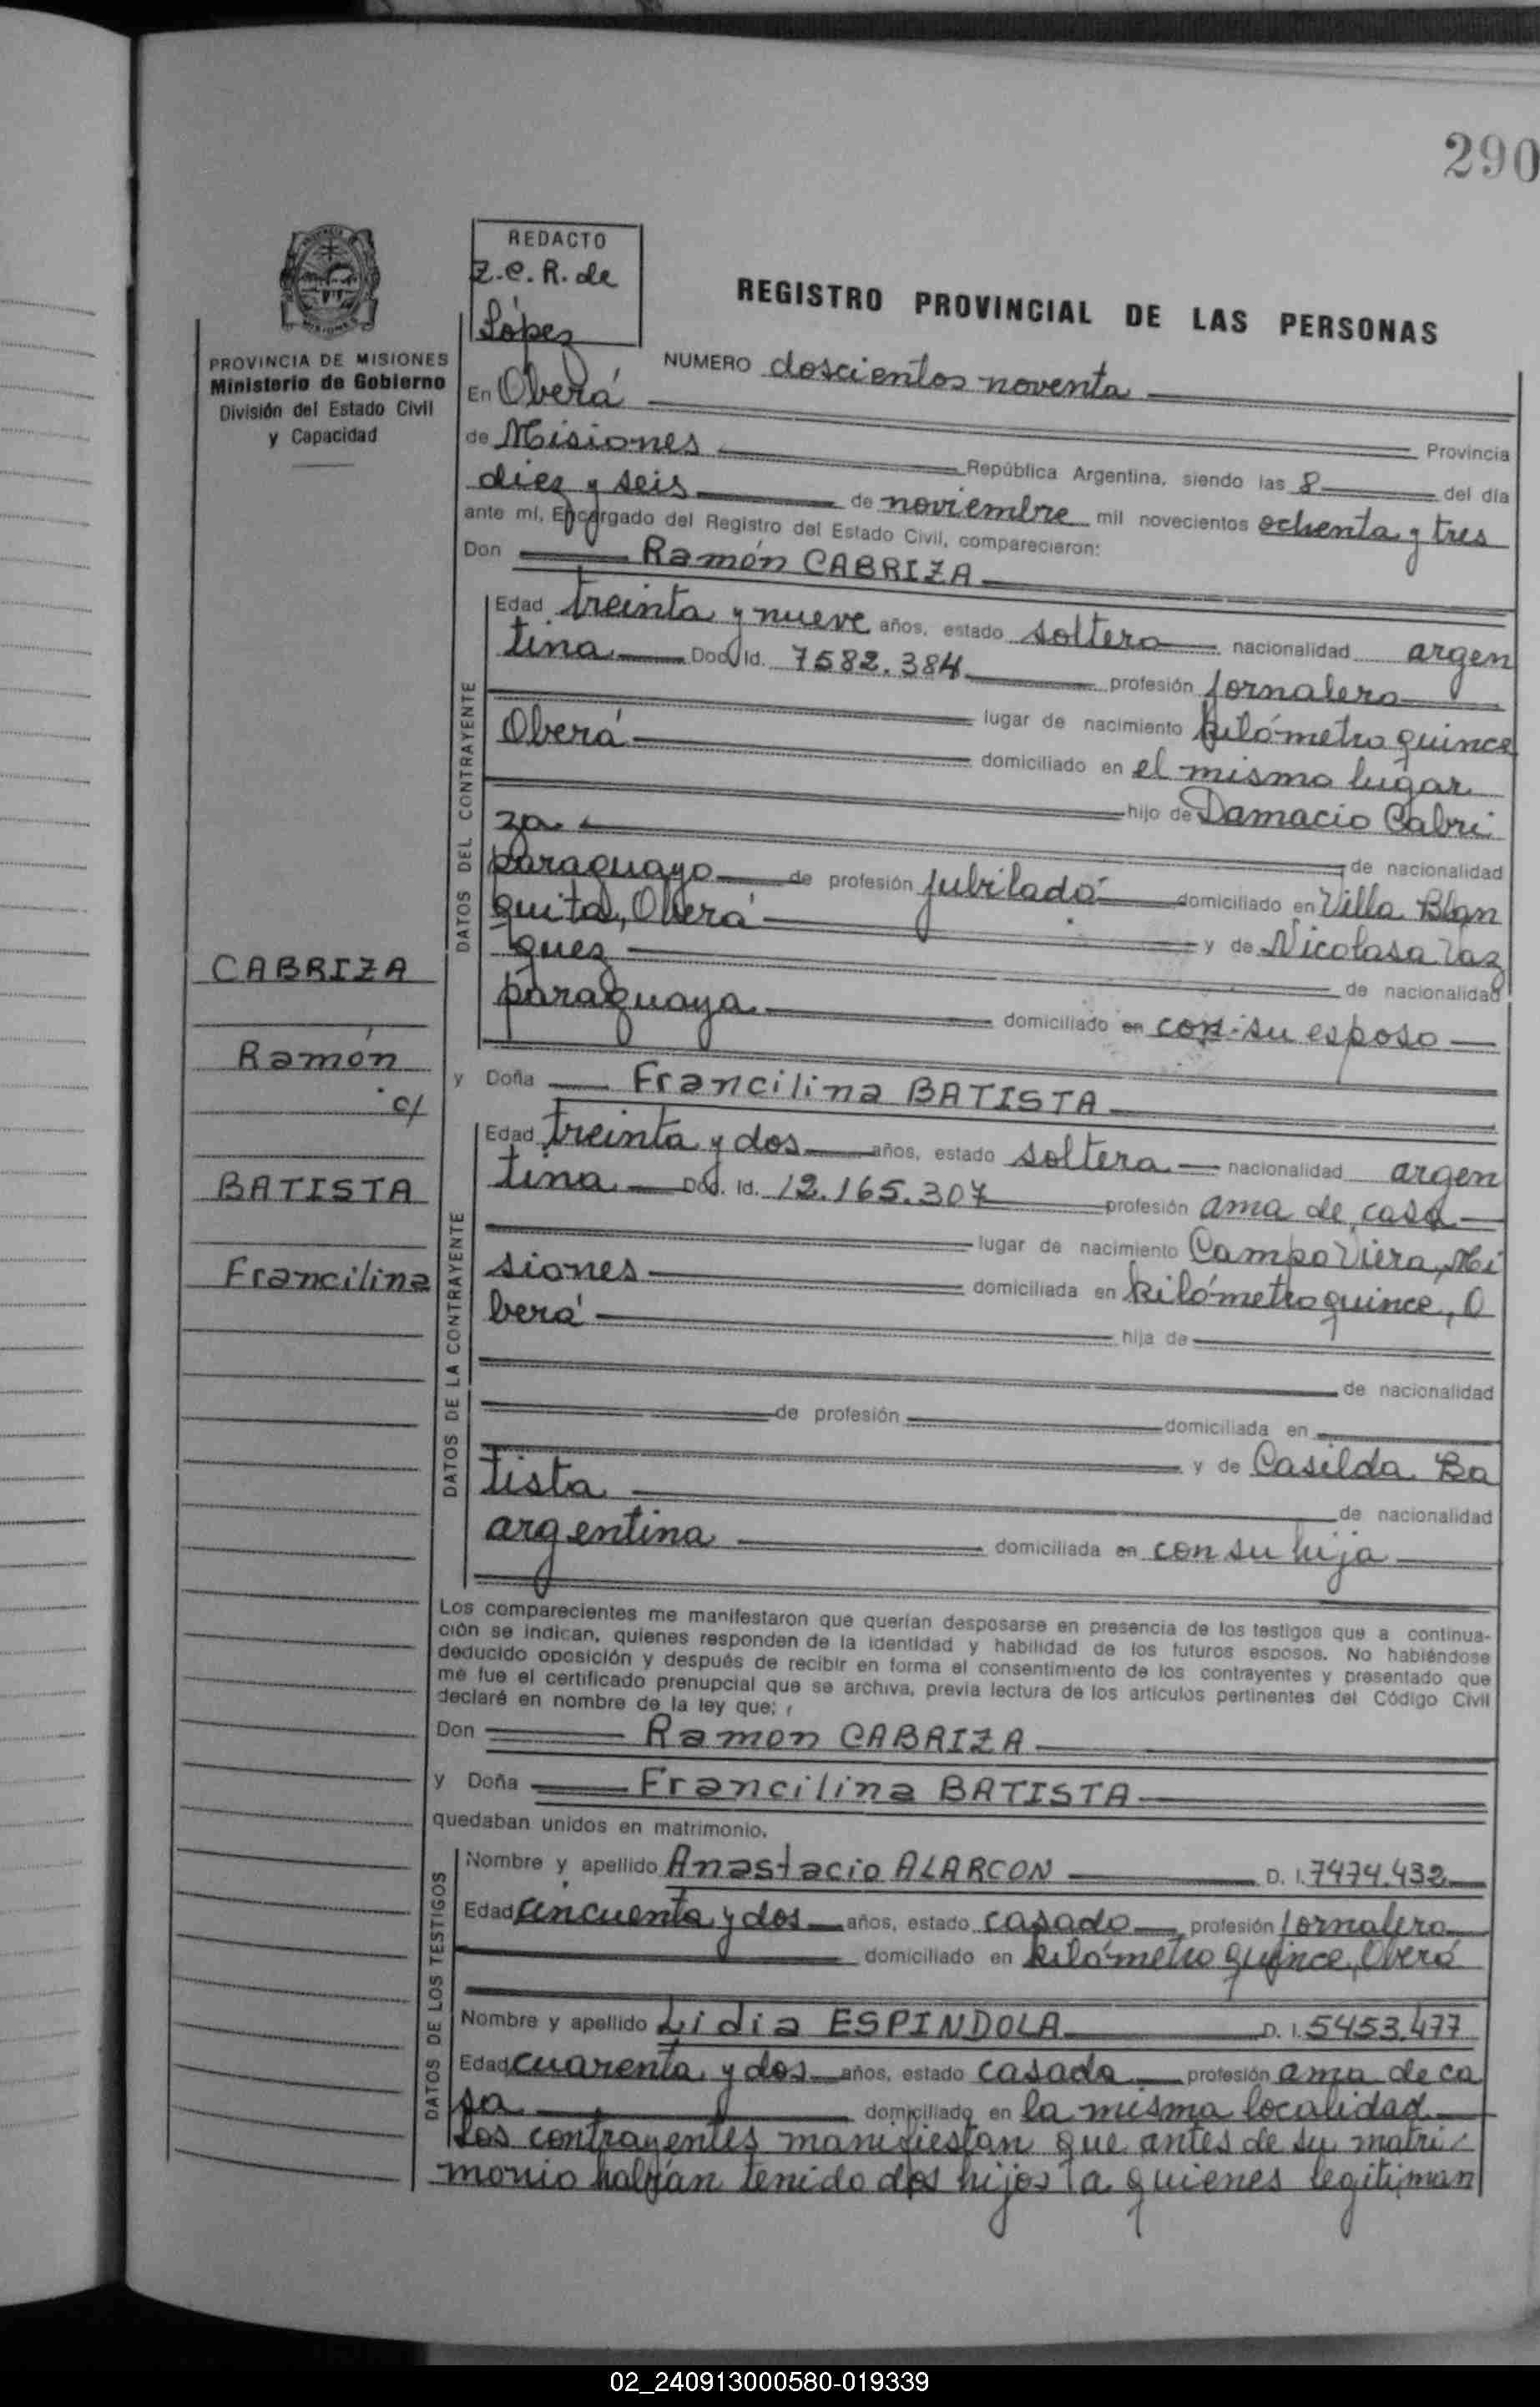 290
REDACTO
Z.C.R. de
López
REGISTRO PROVINCIAL DE LAS PERSONAS
PROVINCIA DE MISIONES
Ministerio de Gobierno
División del Estado Civil
y Capacidad
NUMERO doscientos noventa
En Oberá Provincia
de Misiones República Argentina, siendo las 8 del día
diez y seis de noviembre mil novecientos ochenta y tres
ante mí, Encargado del Registro del Estado Civil, comparecieron:
Don Ramón CABRIZA
DATOS DEL CONTRAYENTE
Edad treinta y nueve años, estado soltero nacionalidad argen
tina Doc. Id. 7582.384 profesión jornalero
lugar de nacimiento kilómetro quince
Oberá domiciliado en el mismo lugar
hijo de Damacio Cabri
za de nacionalidad
paraguayo de profesión jubilado domiciliado en Villa Blan
quita, Oberá y de Nicolasa Vaz
quez de nacionalidad
paraguaya domiciliado en con su esposo
CABRIZA
Ramón
c/
BATISTA
Francilina
y Doña Francilina BATISTA
DATOS DE LA CONTRAYENTE
Edad treinta y dos años, estado soltera nacionalidad argen
tina Doc. Id. 12.165.307 profesión ama de casa
lugar de nacimiento Campo Viera, Mi
siones domiciliada en kilómetro quince, O
berá hija de
de nacionalidad
de profesión domiciliada en
y de Casilda Ba
tista de nacionalidad
argentina domiciliada en con su hija
Los comparecientes me manifestaron que querían desposarse en presencia de los testigos que a continua-
ción se indican, quienes responden de la identidad y habilidad de los futuros esposos. No habiéndose
deducido oposición y después de recibir en forma el consentimiento de los contrayentes y presentado que
me fue el certificado prenupcial que se archiva, previa lectura de los artículos pertinentes del Código Civil
declaré en nombre de la ley que;
Don Ramon CABRIZA
y Doña Francilina BATISTA
quedaban unidos en matrimonio.
DATOS DE LOS TESTIGOS
Nombre y apellido Anastacio ALARCON D. I. 7474.432
Edad cincuenta y dos años, estado casado profesión jornalero
domiciliado en kilómetro quince, Oberá
Nombre y apellido Lidia ESPINDOLA D. I. 5453.477
Edad cuarenta y dos años, estado casada profesión ama de ca
sa domiciliado en la misma localidad
Los contrayentes manifiestan que antes de su matri-
monio habían tenido dos hijos a quienes legitiman
02_240913000580-019339